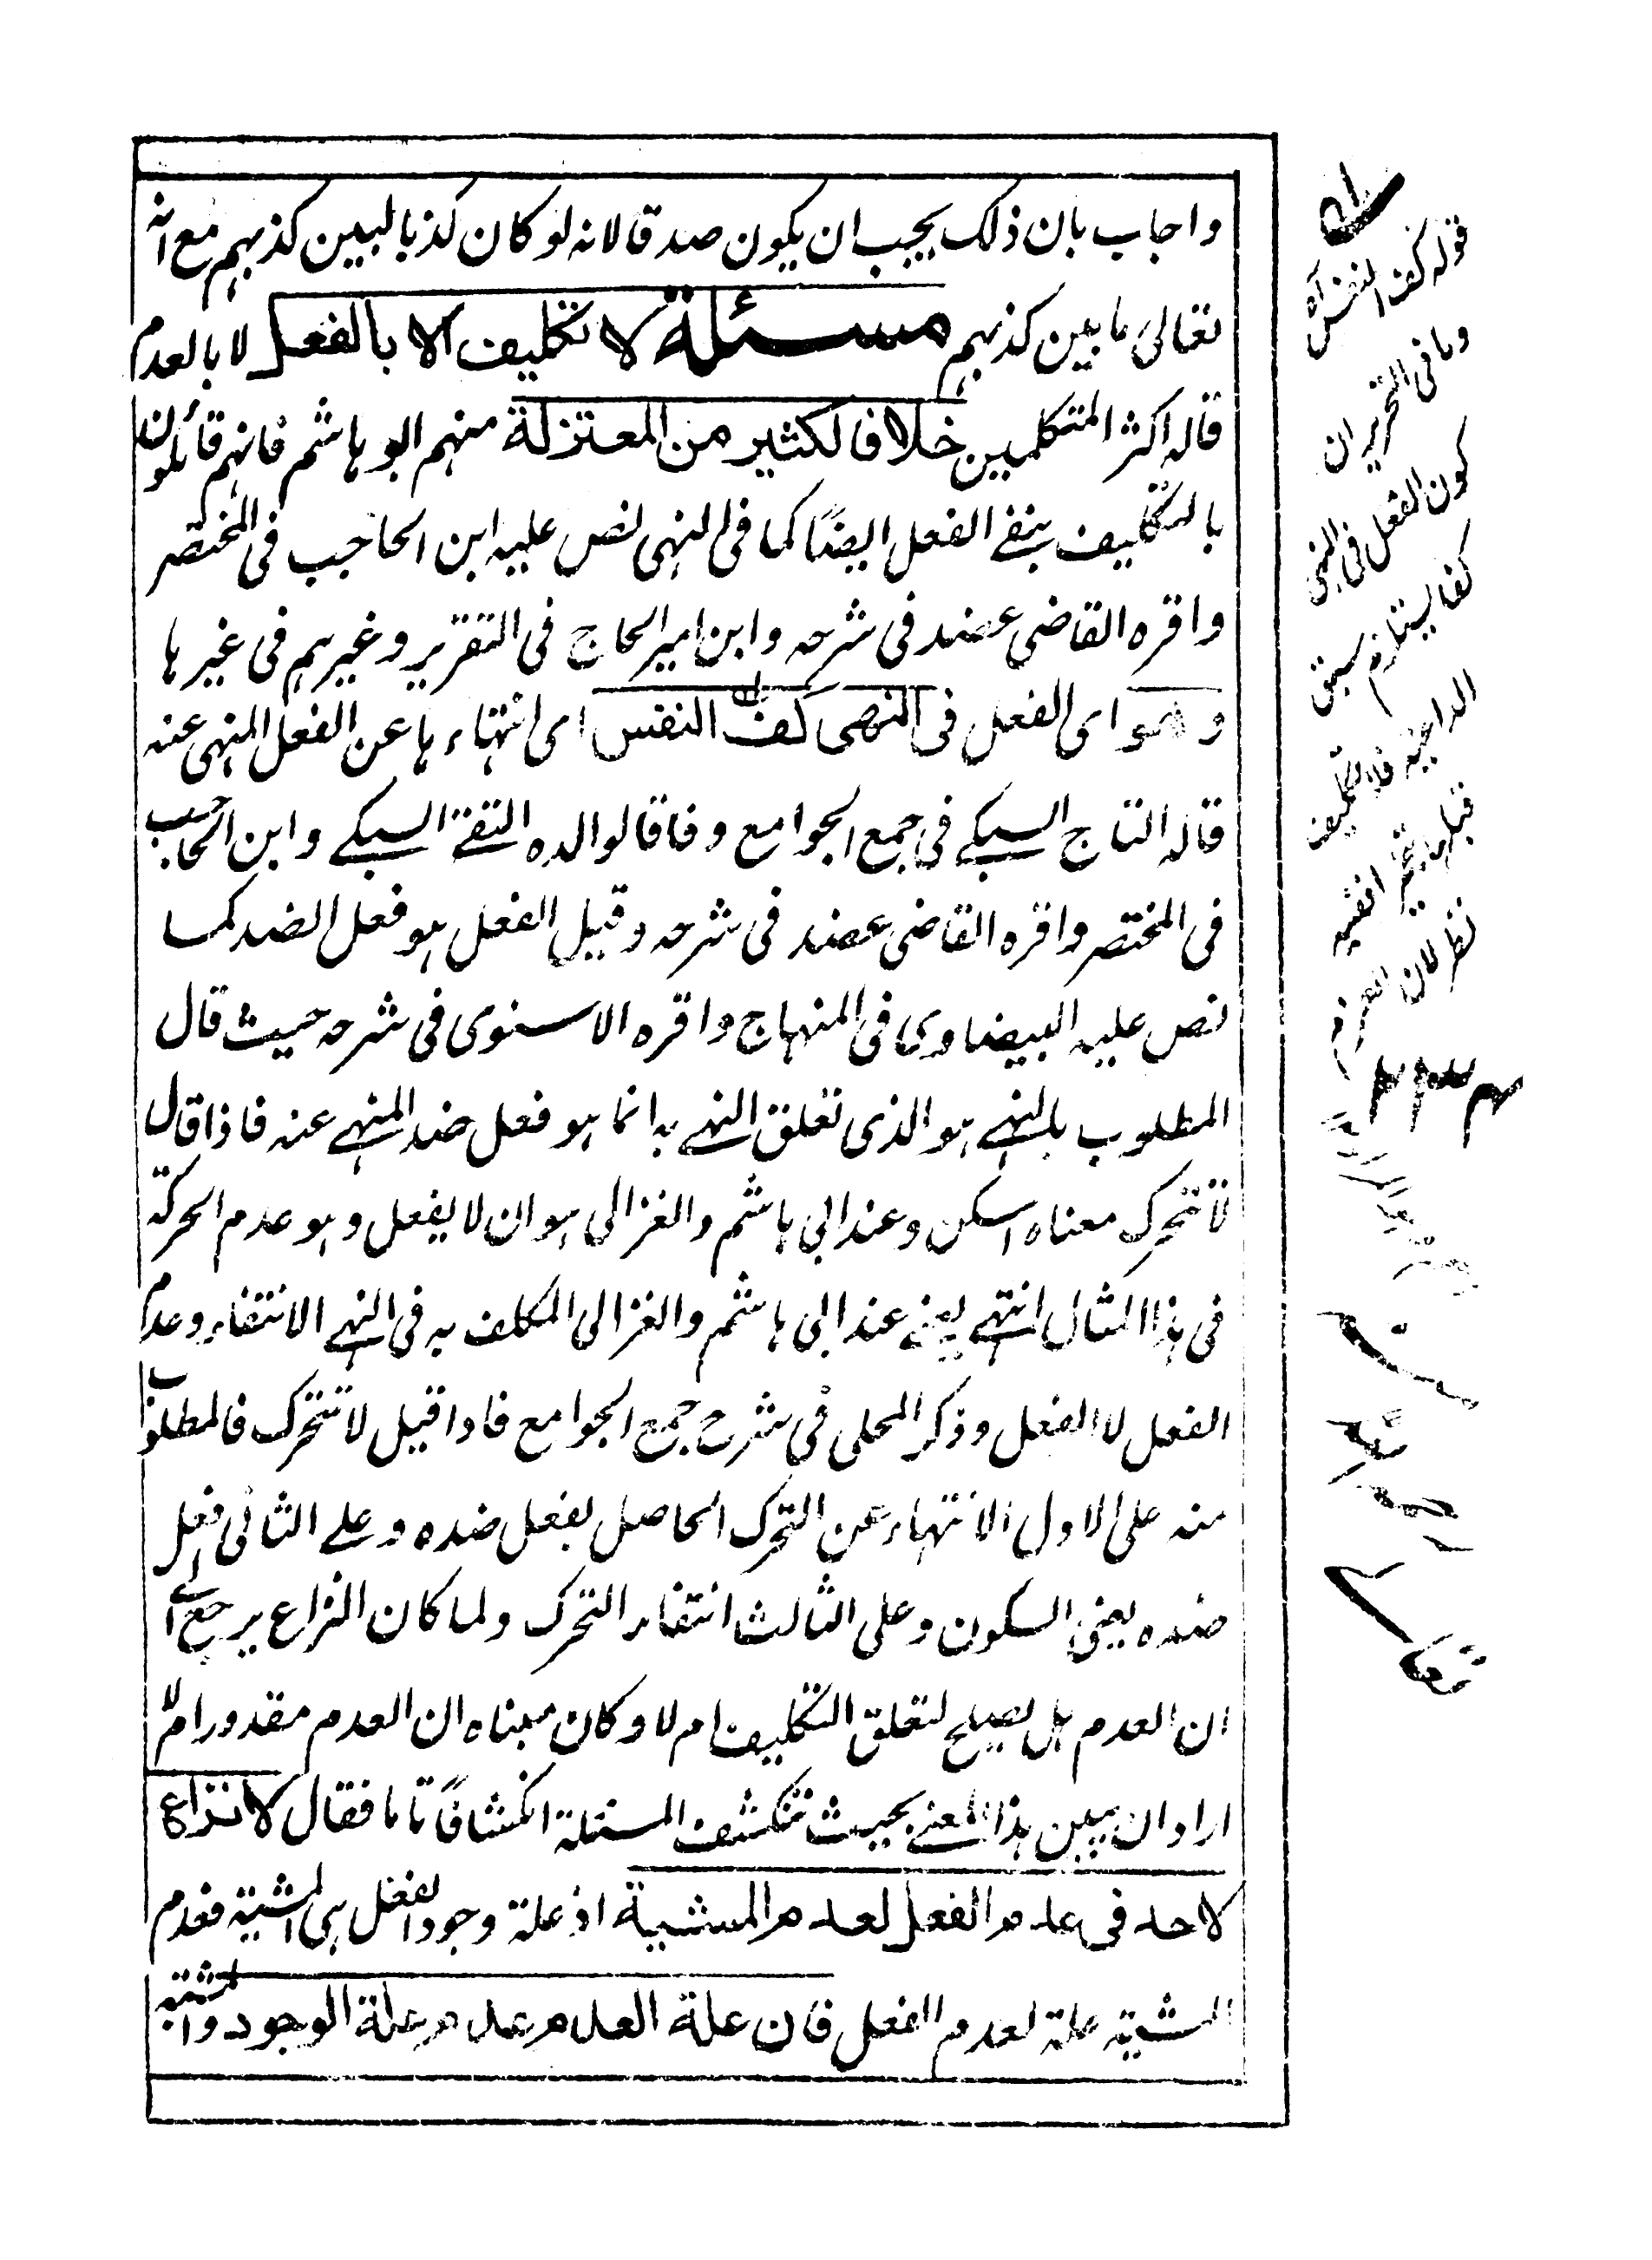 واجاب بان ذلك يجب ان يكون صدقا لانه لو كان كذبا لبين كذبهم مع انه
تعالى ما بين كذبهم مسئلة لا تكليف الا بالفعل لا بالعدم
قاله اكثر المتكلمين خلافا لكثير من المعتزلة منهم ابو هاشم فانهم قائلون
بالتكليف بنفى الفعل ايضًا كما فى النهى نص عليه ابن الحاجب فى المختصر
واقره القاضى عضد فى شرحه وابن امير الحاج فى التقرير وغيرهم فى غيرها
وهو اى الفعل فى النهى كف النفس اى انتهاءها عن الفعل المنهى عنه
قاله التاج السبكى فى جمع الجوامع وفاقا لوالده التقى السبكى وابن الحاجب
فى المختصر واقره القاضى عضد فى شرحه وقيل الفعل هو فعل الضد كما
نص عليه البيضاوى فى المنهاج واقره الاسنوى فى شرحه حيث قال
المطلوب بالنهى هو الذى تعلق النهى به انما هو فعل ضد المنهى عنه فاذا قال
لا تتحرك معناه اسكن وعند ابى هاشم والغزالى هو ان لا يفعل وهو عدم الحركة
فى هذا المثال انتهى يعنى عند ابى هاشم والغزالى المكلف به فى النهى الانتفاء وعدم
الفعل لا الفعل وذكر المحلى فى شرح جمع الجوامع فاذا قيل لا تتحرك فالمطلوب
منه على الاول الانتهاء عن التحرك الحاصل بفعل ضده وعلى الثانى فعل
ضده يعنى السكون وعلى الثالث انتفاء التحرك ولما كان النزاع يرجع الى
ان العدم هل يصلح لتعلق التكليف ام لا وكان مبناه ان العدم مقدور ام لا
اراد ان يبين هذا المعنى بحيث تنكشف المسئلة انكشافًا تاما فقال لا نزاع
لاحد فى عدم الفعل لعدم المشية اذ علة وجود الفعل هى المشية فعدم
المشية علة لعدم الفعل فان علة العدم عدم علة الوجود والمشية
قوله كف النفس آه
وما فى التحرير ان
كون الفعل فى النهى
كفا يستلزم سبق
الداعية فلا تكليف
قبلها
نظر لان